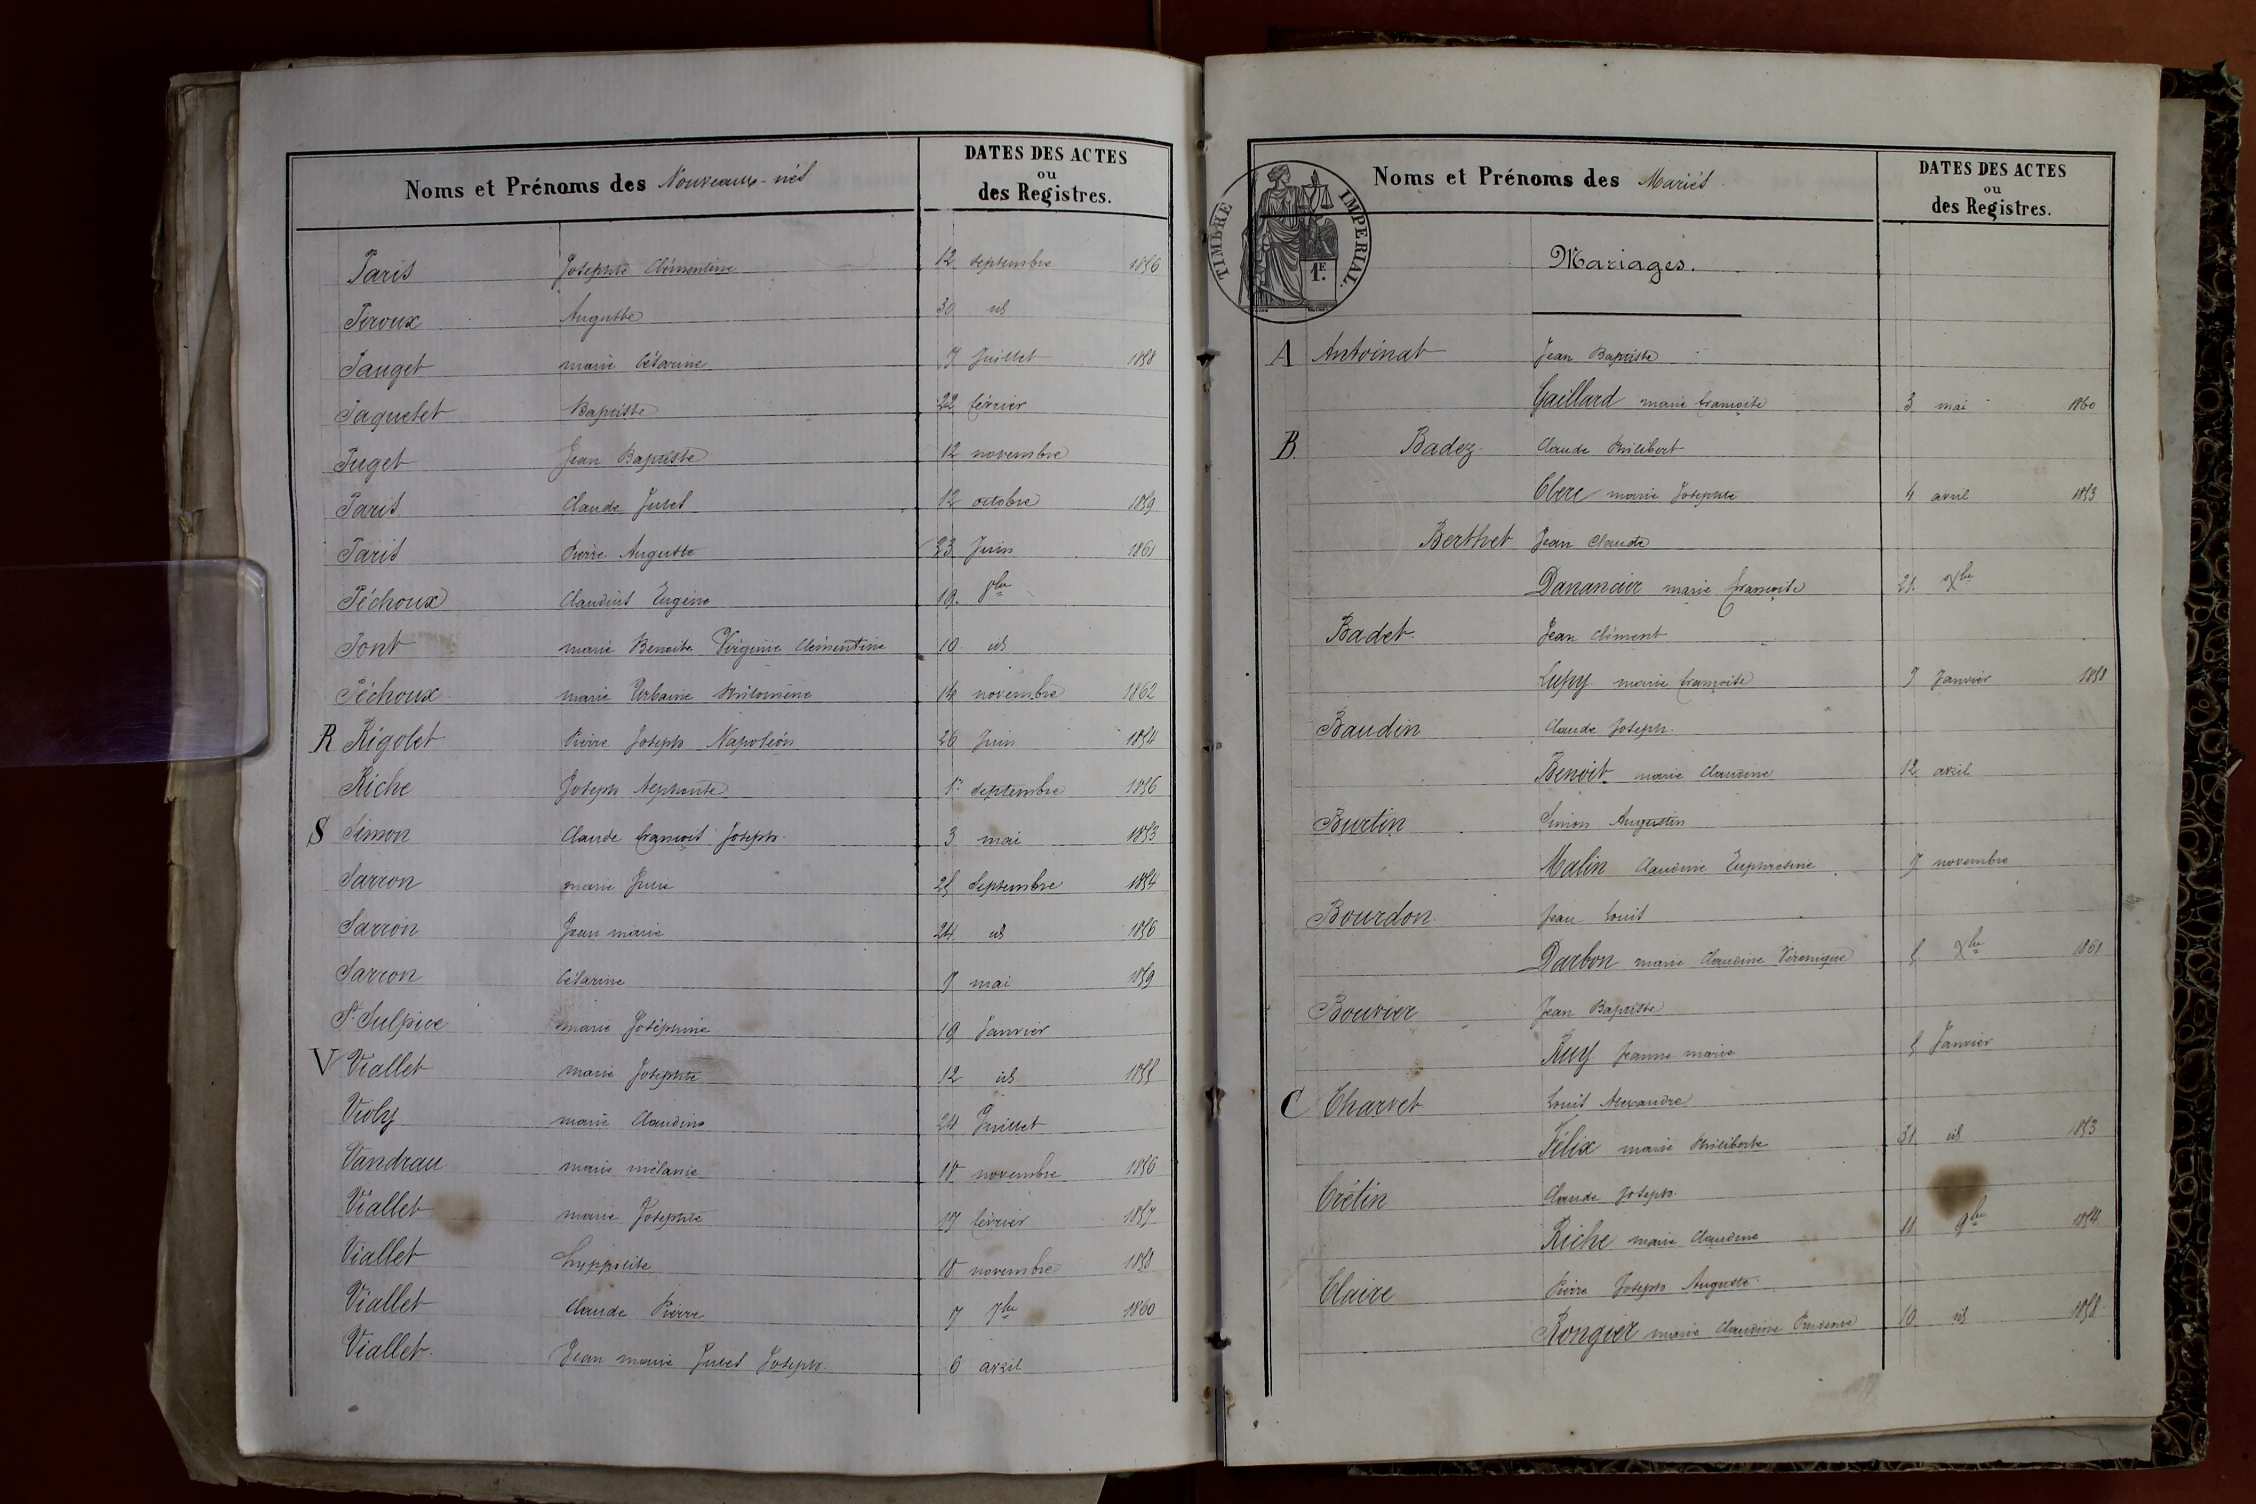 Noms et Prénoms des Nouveaux-nés
DATES DES ACTES
ou
des Registres.
Paris Josephte Clémentine 12 septembre 1856
Peroux Auguste 30 id
Pauget marie Césarine 7 Juillet 1858
Paquelet Baptiste 22 février
Puget Jean Baptiste 12 novembre
Paris Claude Jules 12 octobre 1859
Paris Pierre Auguste 23 Juin 1861
Péchoux Claudius Eugène 19. 8bre
Pont marie Benoite Virginie Clémentine 10 id
Péchoux marie Urbaine Philomène 14 novembre 1862
R Rigolet Pierre Joseph Napoléon 26 Juin 1854
Riche Joseph Alphonse 1er septembre 1856
S Simon Claude françois Joseph 3 mai 1853
Sarron marie Julie 25 septembre 1854
Sarron Jean marie 24 id 1856
Sarron Césarine 7 mai 1859
St Sulpice marie Joséphine 19 Janvier
V Viallet marie Josephte 12 id 1855
Violy marie Claudine 24 Juillet
Vandrau marie mélanie 18 novembre 1856
Viallet marie Josephte 17 février 1857
Viallet hyppolite 18 novembre 1858
Viallet Claude Pierre 7 7bre 1860
Viallet Jean marie Jules Joseph 6 avril
Noms et Prénoms des Mariés
DATES DES ACTES
ou
des Registres.
TIMBRE IMPERIAL.
1.E
Mariages.
A Antoinat Jean Baptiste
Gaillard marie françoise 3 mai 1860
B Badez Claude Philibert
Clerc marie Josephte 4 avril 1853
Berthet Jean Claude
Danancier marie françoise 21. Xbre
Badet Jean Clément
Lupy marie françoise 9 Janvier 1858
Baudin Claude Joseph
Benoit marie Claudine 12 avril
Burtin Simon Augustin
Malin Claudine Euphrosine 7 novembre
Bourdon Jean Louis
Darbon marie Claudine Véronique 5 Xbre 1861
Bouvier Jean Baptiste
Ruy Jeanne marie 5 Janvier
C Charvet Louis Alexandre
Félix marie Philiberte 31 id 1853
Crétin Claude Joseph
Riche marie Claudine 11 9bre 1854
Claire Pierre Joseph Auguste
Rongier marie Claudine Prudence 10 id 1858